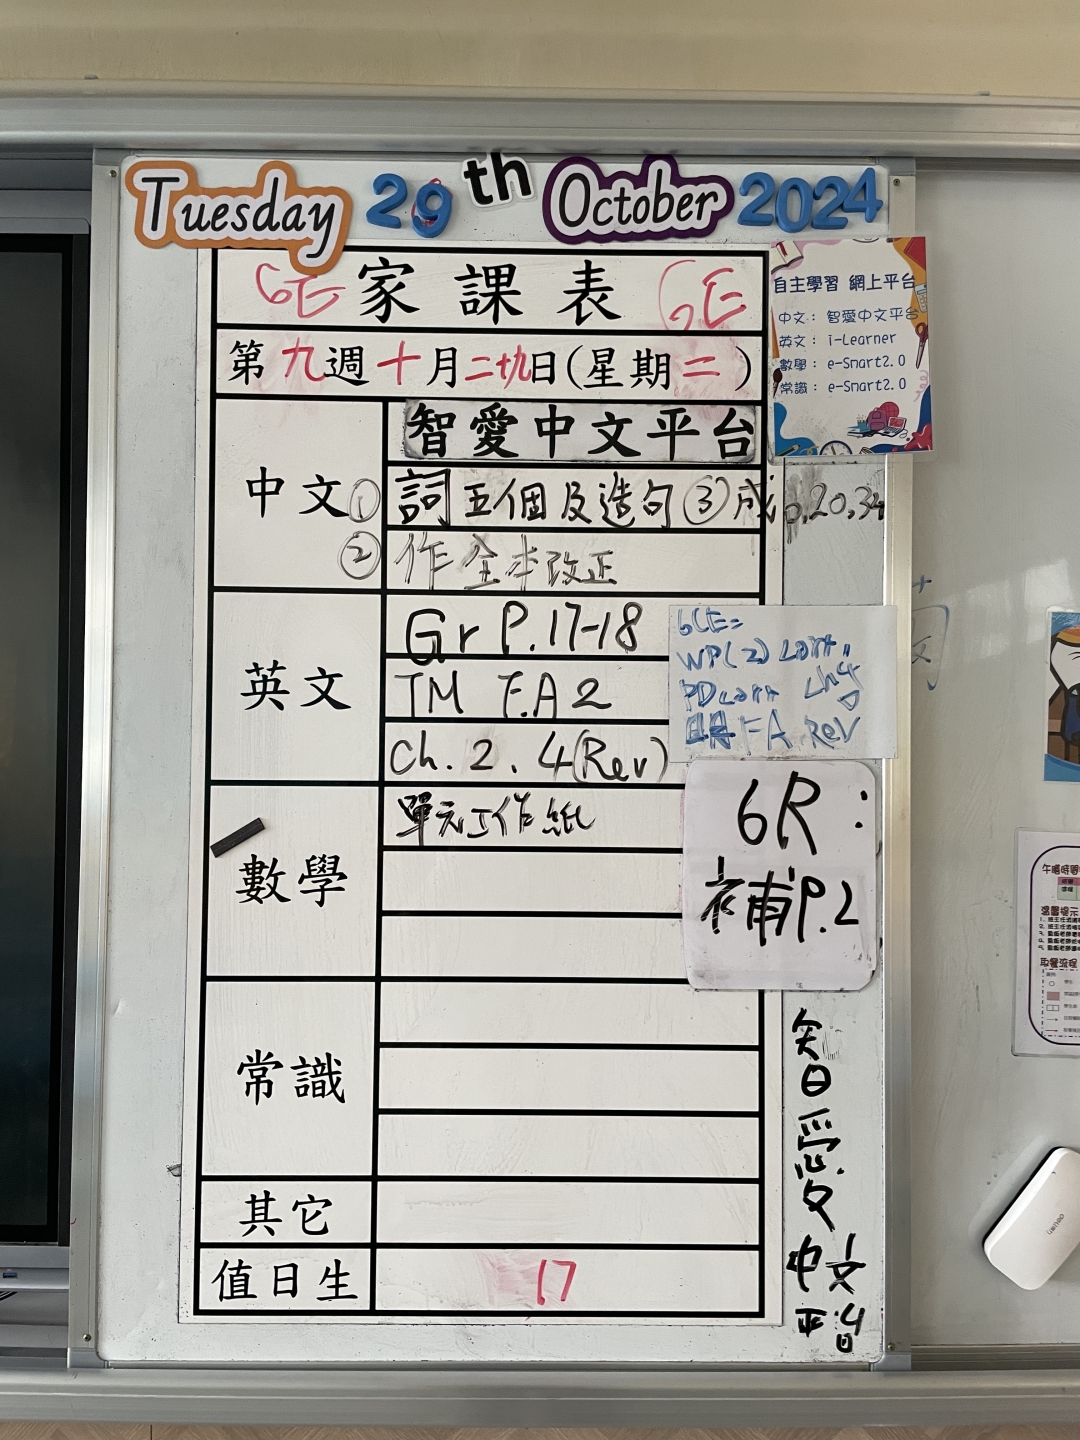 Tuesday 29th October 2024
6E 家課表 6E
第九週十月二十九日(星期二)
自主學習 網上平台
中文： 智愛中文平台
英文： i-Learner
數學： e-Smart2.0
常識： e-Smart2.0
中文
智愛中文平台
① 詞五個及造句 ③成p.20,34
② 作全本改正
英文
Gr P.17-18
TM F.A 2
Ch. 2. 4(Rev)
WP(2)
FA Rev
數學
單元工作紙
6R:
補P.2
常識
其它
值日生
17
智愛
中文